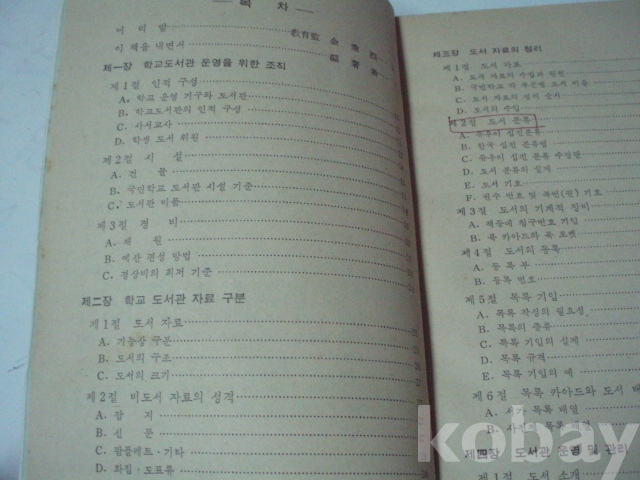 목 차
머 리 말
이 책을 내면서
제一장 학교도서관 운영을 위한 조직
제1절 인적 구성
A. 학교 운영 기구와 도서관
B. 학교도서관의 인적 구성
C. 사서교사
D. 학생 도서 위원
제2절 시 설
A. 건 물
B. 국민학교 도서관 시설 기준
C. 도서관 비품
제3절 경 비
A. 재 원
B. 예산 편성 방법
C. 경상비의 최저 기준
제二장 학교 도서관 자료 구분
제1절 도서 자료
A. 기능상 구분
B. 도서의 구조
C. 도서의 크기
제2절 비도서 자료의 성격
A. 잡 지
B. 신 문
C. 팜플레트·기타
D. 화집·도표류
제三장 도서 자료의 정리
제1절 도서 자료
A. 도서 자료의 수집과
B. 국민학교 각 도서 비율
C. 도서 자료의 정리 순서
D. 도서의 수입
제2절 도서 분류
A. 듀우이 십진분류
B. 한국 십진 분류법
C. 듀우이 십진 분류 수정판
D. 도서 분류의 실제
E. 도서 기호
F. 권수 번호 및 복본(권) 기호
제3절 도서의 기계적 장비
A. 책등에 청구번호 기입
B. 북 카아드와 북 포켓
제4절 도서의 등록
A. 등 록 부
B. 등록 번호
제5절 목록 기입
A. 목록 작성의 필요성
B. 목록의 종류
C. 목록 기입의 실제
D. 목록 규격
E. 목록 기입의 예
제6절 목록 카아드와 도서 배
A. 서가 목록 배열
B. 사전체 목록 배열
제四장 도서관 운영 및 관리
제1절 도서 소개
kobay